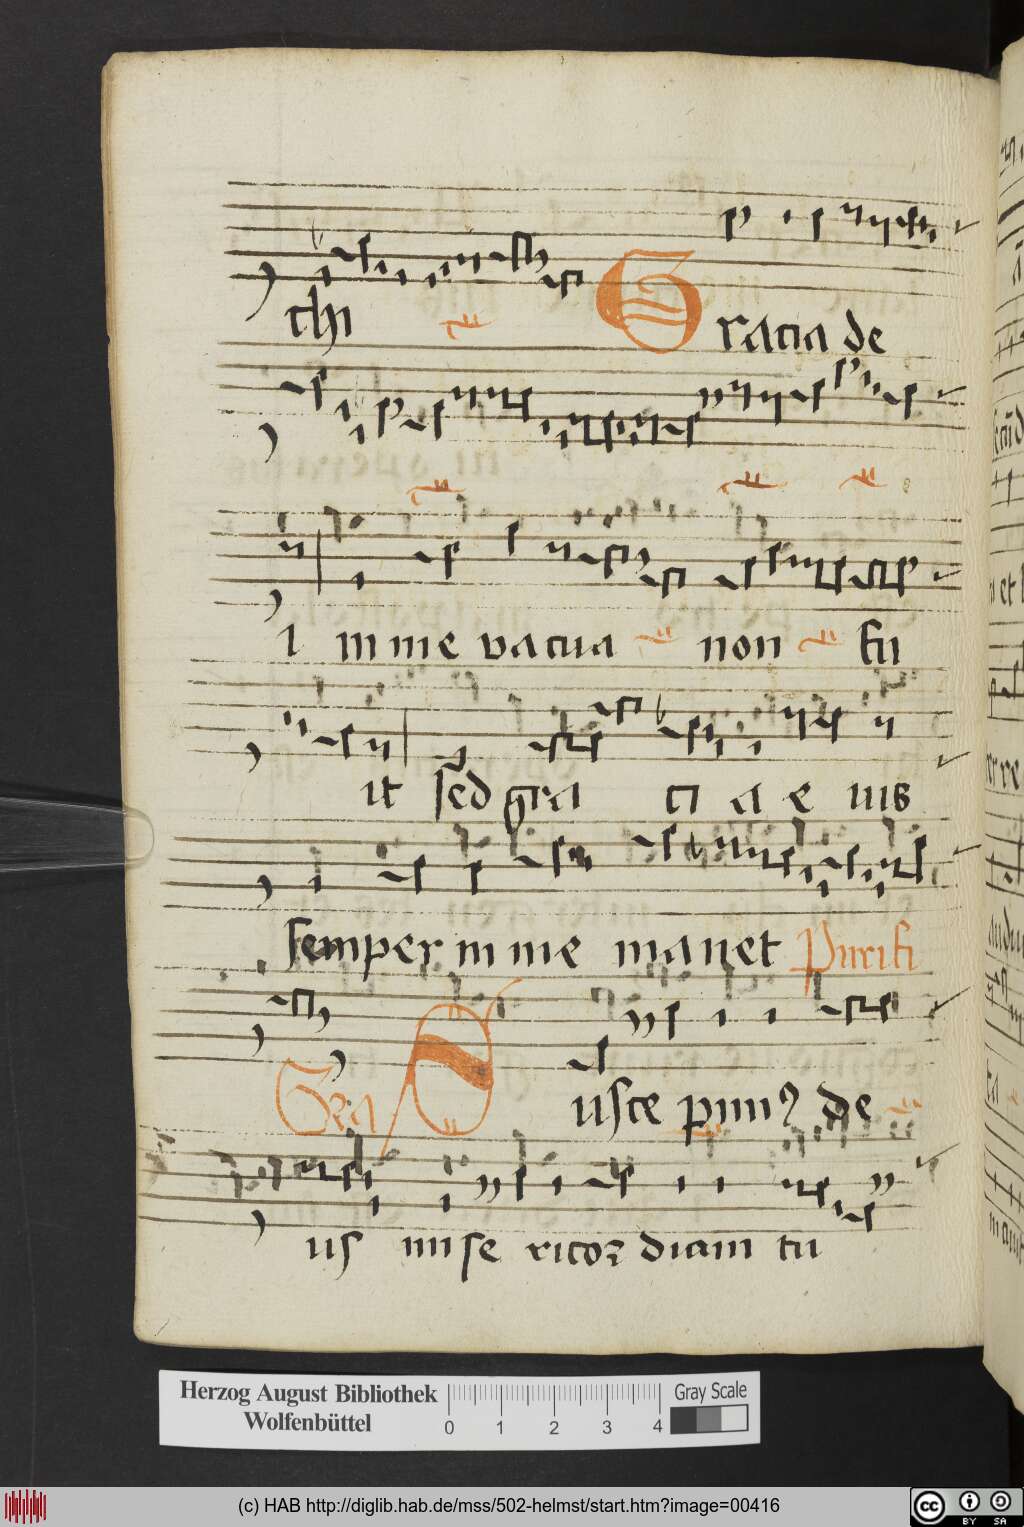 thi Gracia de
i in me vacua non fu
it sed gra ci a e ius
semper in me manet Purifi
Gra Suscepim⁹ de
us mise ricor diam tu
Herzog August Bibliothek
Wolfenbüttel
0 1 2 3 4
Gray Scale
(c) HAB http://diglib.hab.de/mss/502-helmst/start.htm?image=00416
cc BY SA